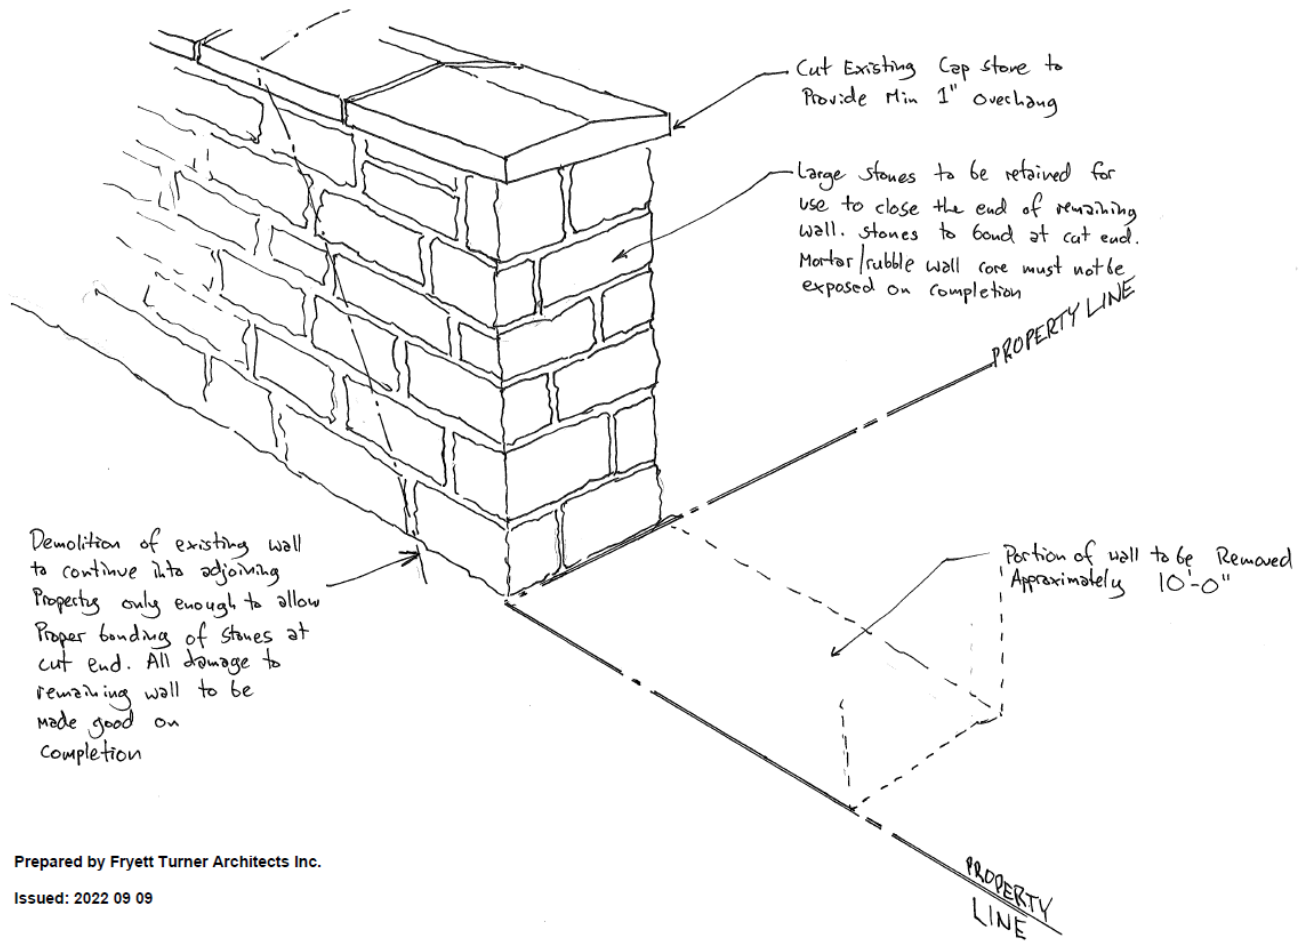 Cut Existing Cap stone to
Provide Min 1" Overhang
Large stones to be retained for
use to close the end of remaining
wall. stones to bond at cut end.
Mortar/rubble wall core must not be
exposed on completion
PROPERTY LINE
Demolition of existing wall
to continue into adjoining
Property only enough to allow
Proper bonding of stones at
cut end. All damage to
remaining wall to be
made good on
completion
Portion of wall to be Removed
Approximately 10'-0"
PROPERTY
LINE
Prepared by Fryett Turner Architects Inc.
Issued: 2022 09 09